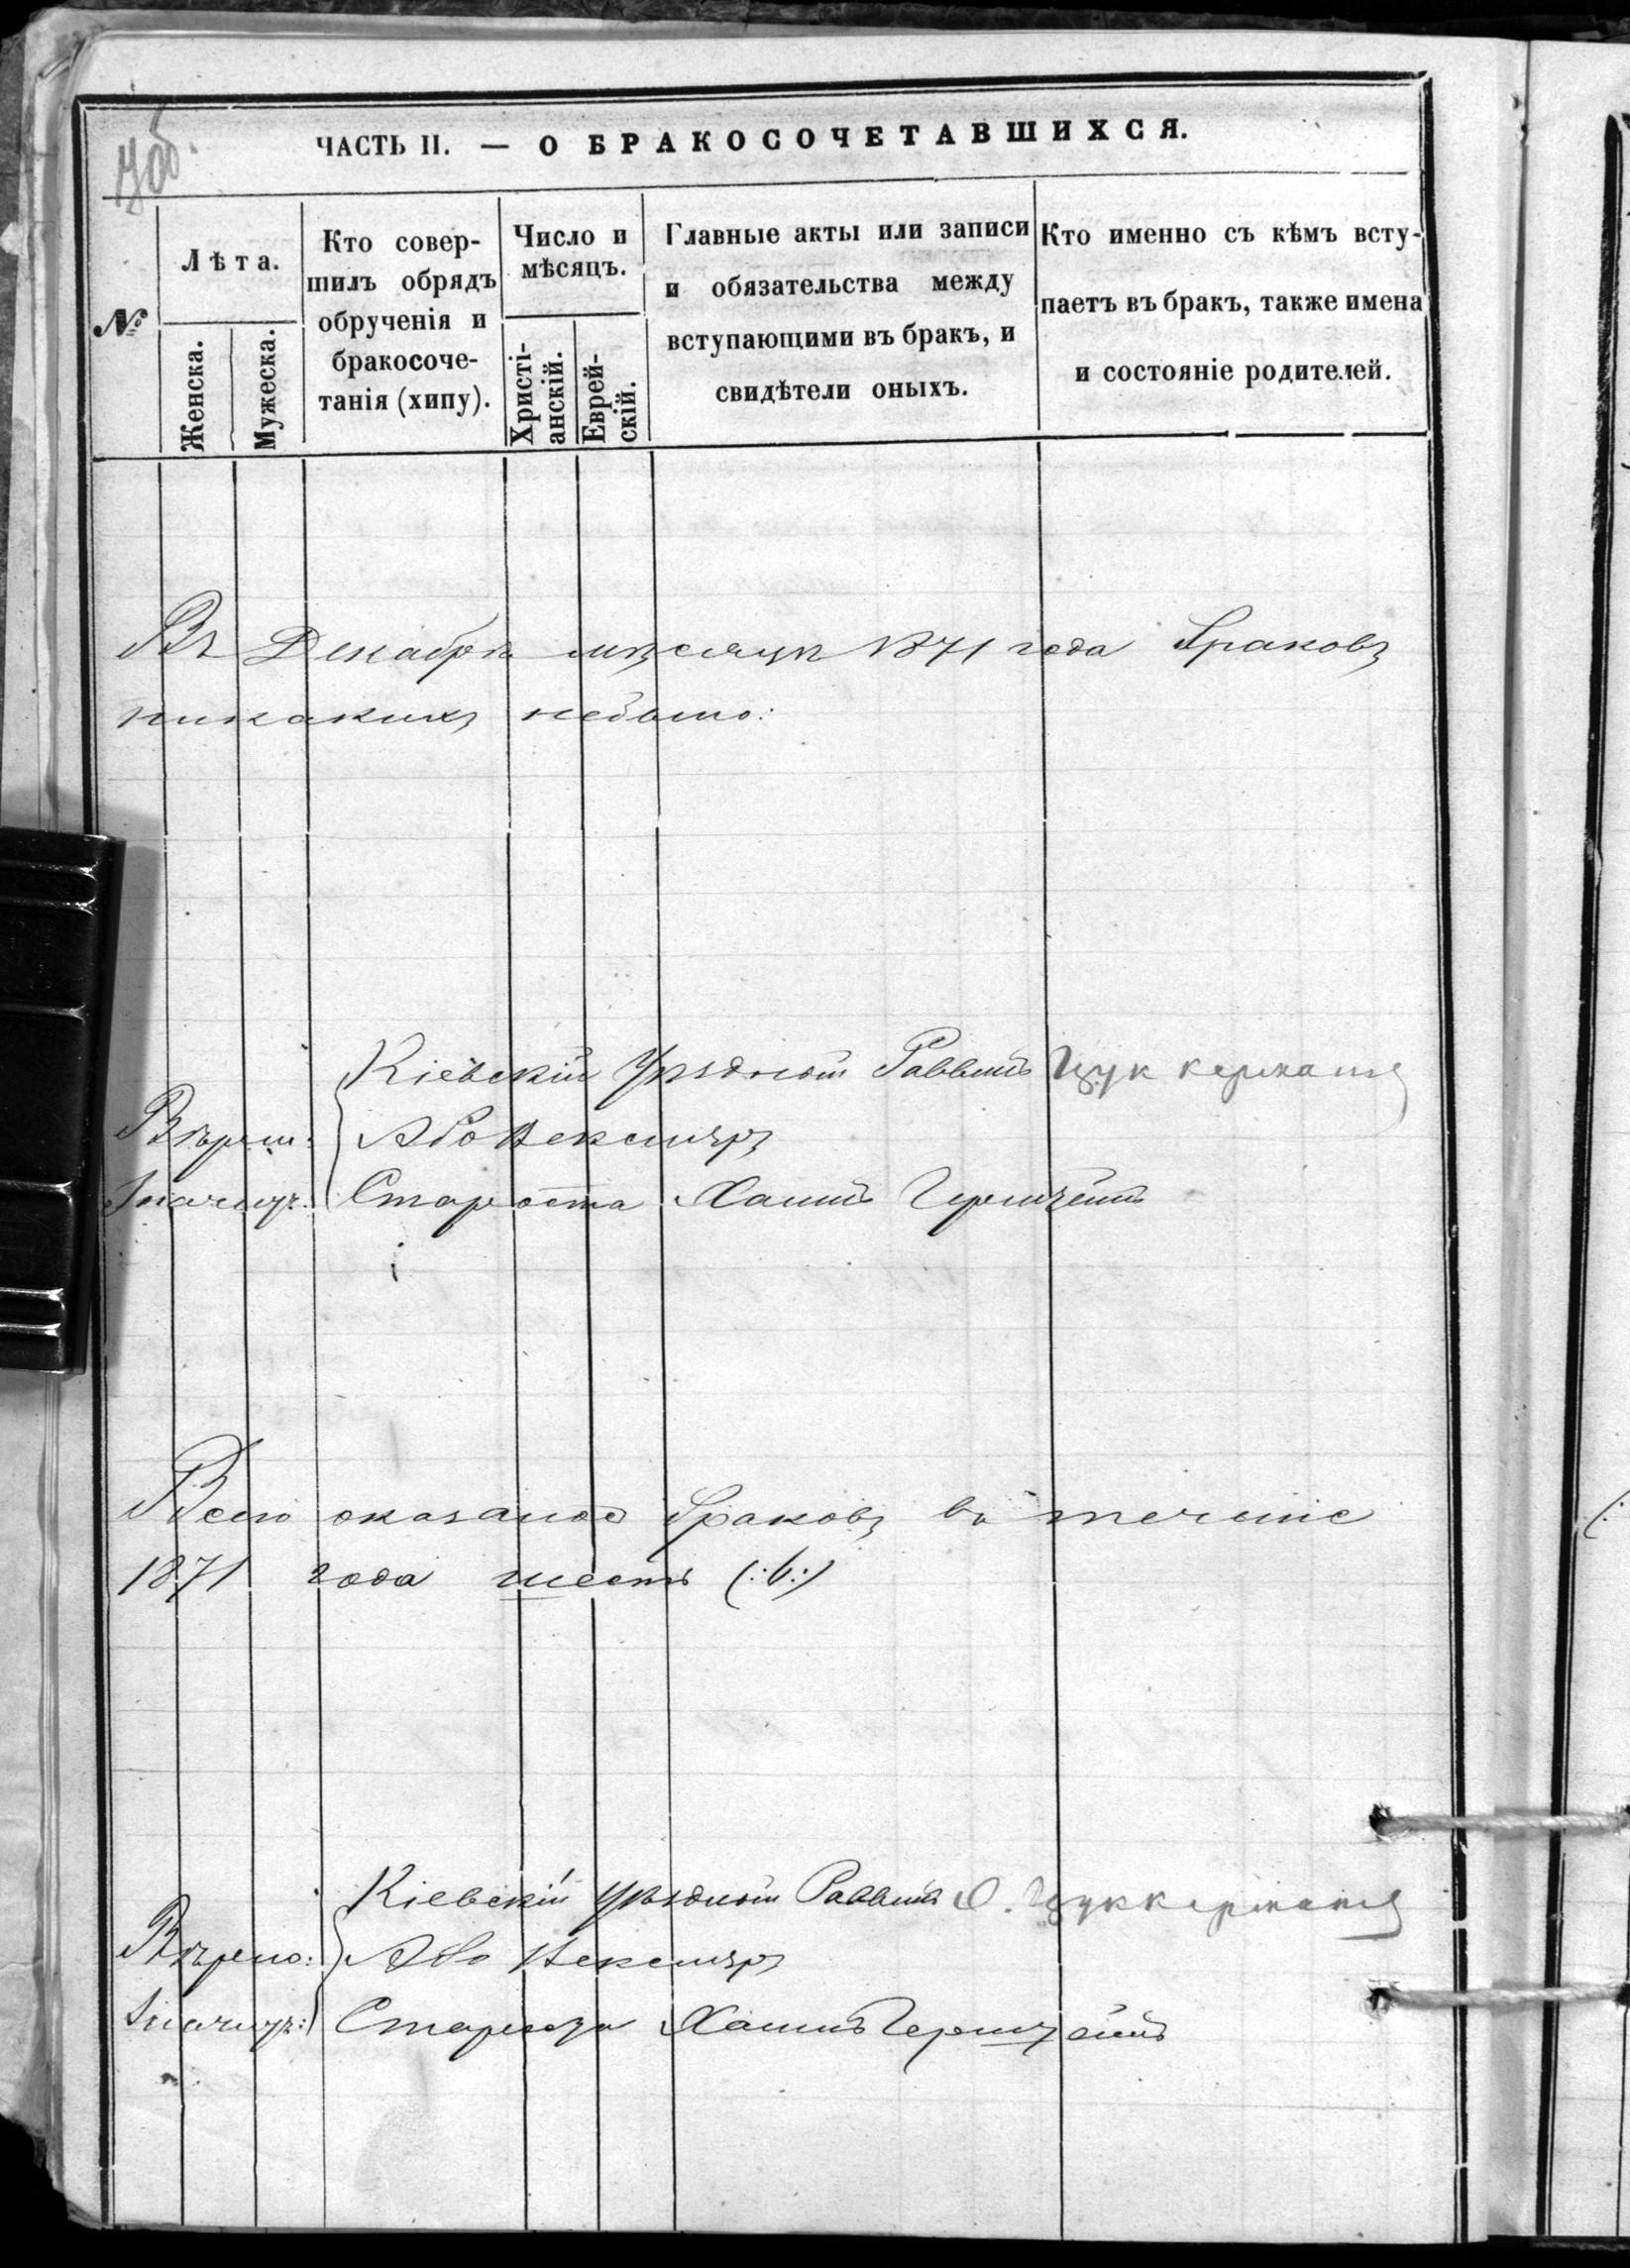 ЧАСТЬ II. — О БРАКОСОЧЕТАВШИХСЯ.
№
Лѣта.
Женска.
Мужеска.
Кто совер-
шилъ обрядъ
обрученія и
бракосоче-
танія (хипу).
Число и
мѣсяцъ.
Христі-
анскій.
Еврей-
скій.
Главные акты или записи
и обязательства между
вступающими въ бракъ, и
свидѣтели оныхъ.
Кто именно съ кѣмъ всту-
паетъ въ бракъ, также имена
и состояніе родителей.
Въ Декабрѣ мѣсяцѣ 1871 года браковъ
никакихъ небыло:
Кіевскій Уѣздный Раввинъ Цуккерманъ
Вѣрно:
Староста Хаимъ
Всего оказалось браковъ въ теченіе
1871 года шесть (:6:)
Кіевскій Уѣздный Раввинъ О. Цуккерманъ
Вѣрно:
Староста Хаимъ